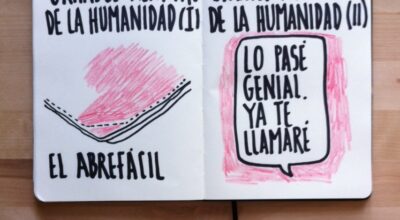 DE LA HUMANIDAD (I)
EL ABREFÁCIL
DE LA HUMANIDAD (II)
LO PASÉ
GENIAL.
YA TE
LLAMARÉ